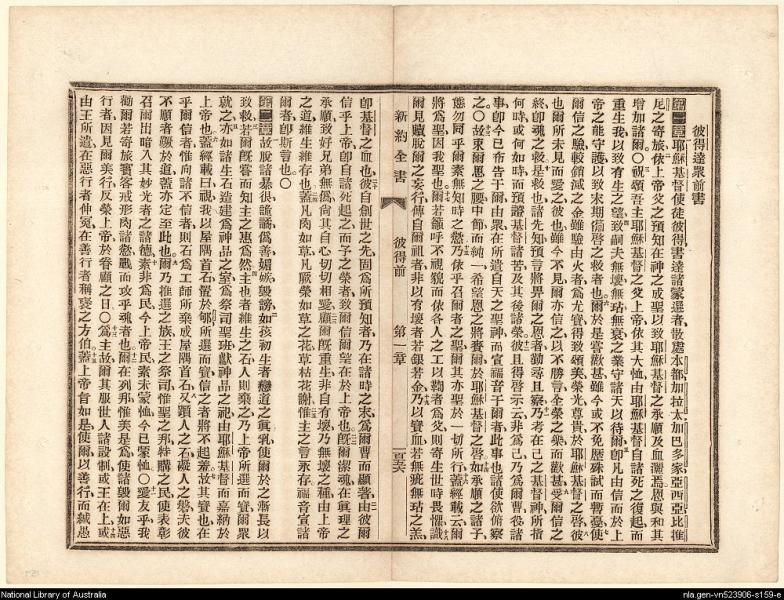 彼得達眾前書
耶穌基督使徒彼得書達諸蒙選者散處本都加拉太加巴多家亞西亞比推
尼之寄旅依上帝父之預知在神之成聖以致耶穌基督之承順及血灑焉恩與和其
增加諸爾○祝頌吾主耶穌基督之父上帝依其大恤由耶穌基督自諸死之復起而
重生我以致有生之望致嗣夫無壞無玷無衰之業守諸天以待爾即凡由信而於上
帝之能守護以致末期備啓之救者也爾於是嘗歡甚雖今或不免歷殊試而暫憂使
爾信之驗較銷滅之金雖驗由火者為尤寶得致頌美榮光尊貴於耶穌基督之啓彼
也爾所未見而愛之彼也雖今不見爾亦信之以不勝言全榮之樂而歡甚受爾信之
終即魂之救是救也諸先知預言將畀爾之恩者勤尋且察乃考在己之基督神所指
何時或何如時而預證基督諸苦及其後諸榮彼且得啓示云非為己乃為爾曹役諸
事即今已布告于爾由眾在所遣自天之聖神而宣福音于爾者此事也諸使欲俯察
之○故束爾思之腰中節而純一希望恩之將賚爾於耶穌基督之啓如承順之諸子
態勿同乎爾素無知時之慾乃依乎召爾者之聖爾其亦聖於一切所行蓋經載云爾
將為聖因我聖也爾若籲呼不視貌而依各人之工以鞫者為父則寄生世時畏懼識
爾見贖脫爾之妄行傳自爾祖者非以有壞者若銀若金乃以寶血若無疵無玷之羔
新約全書 彼得前 第一章 一百五六
即基督之血也彼自創世之先固為所預知者乃在諸時之末為爾曹而顯著由彼爾
信乎上帝即自諸死起之而予之榮者致爾信爾望在於上帝也爾既潔魂在眞理之
承順致好兄弟無偽尚其自心切切相愛顧爾既重生非自有壞乃無壞之種由上帝
之道維生維存也蓋凡肉如草凡厥榮如草之花草枯花謝惟主之言永存福音宣諸
爾者卽斯言也○
故脫諸暴很詭譎偽善媢嫉毀謗如孩初生者戀道之眞乳使爾於之漸長以
致救若爾既嘗而知主之惠為然主也者維生之石人則棄之乃上帝所選而寶爾眾
就之亦如諸生石造建為神品之室為祭司聖班獻神品之祀由耶穌基督而嘉納於
上帝也蓋經載曰視我以屋隅首石置於郇所選而寶信之者將不起羞故其寶也在
乎爾信者惟向諸不信者則石為工師所棄成屋隅首石又躓人之石礙人之磐夫彼
不順者躓於道蓋亦定至此也爾乃推選之族王之祭司惟聖之邦特購之民使表彰
召爾出暗入其妙光者之諸德素非為民今上帝民素未蒙恤今已蒙恤○愛友乎我
勸爾若寄旅賓客戒形肉諸慾戰而攻乎魂者也爾在列邦惟美是為使諸毀爾如惡
行者因見爾美行反榮上帝於眷顧之日○為主故爾其服世人諸設制或王在上或
由王所遣在惡行者伸冤在善行者稱褒之方伯蓋上帝旨如是使爾以善行而緘愚
National Library of Australia
nla.gen-vn523906-s159-e